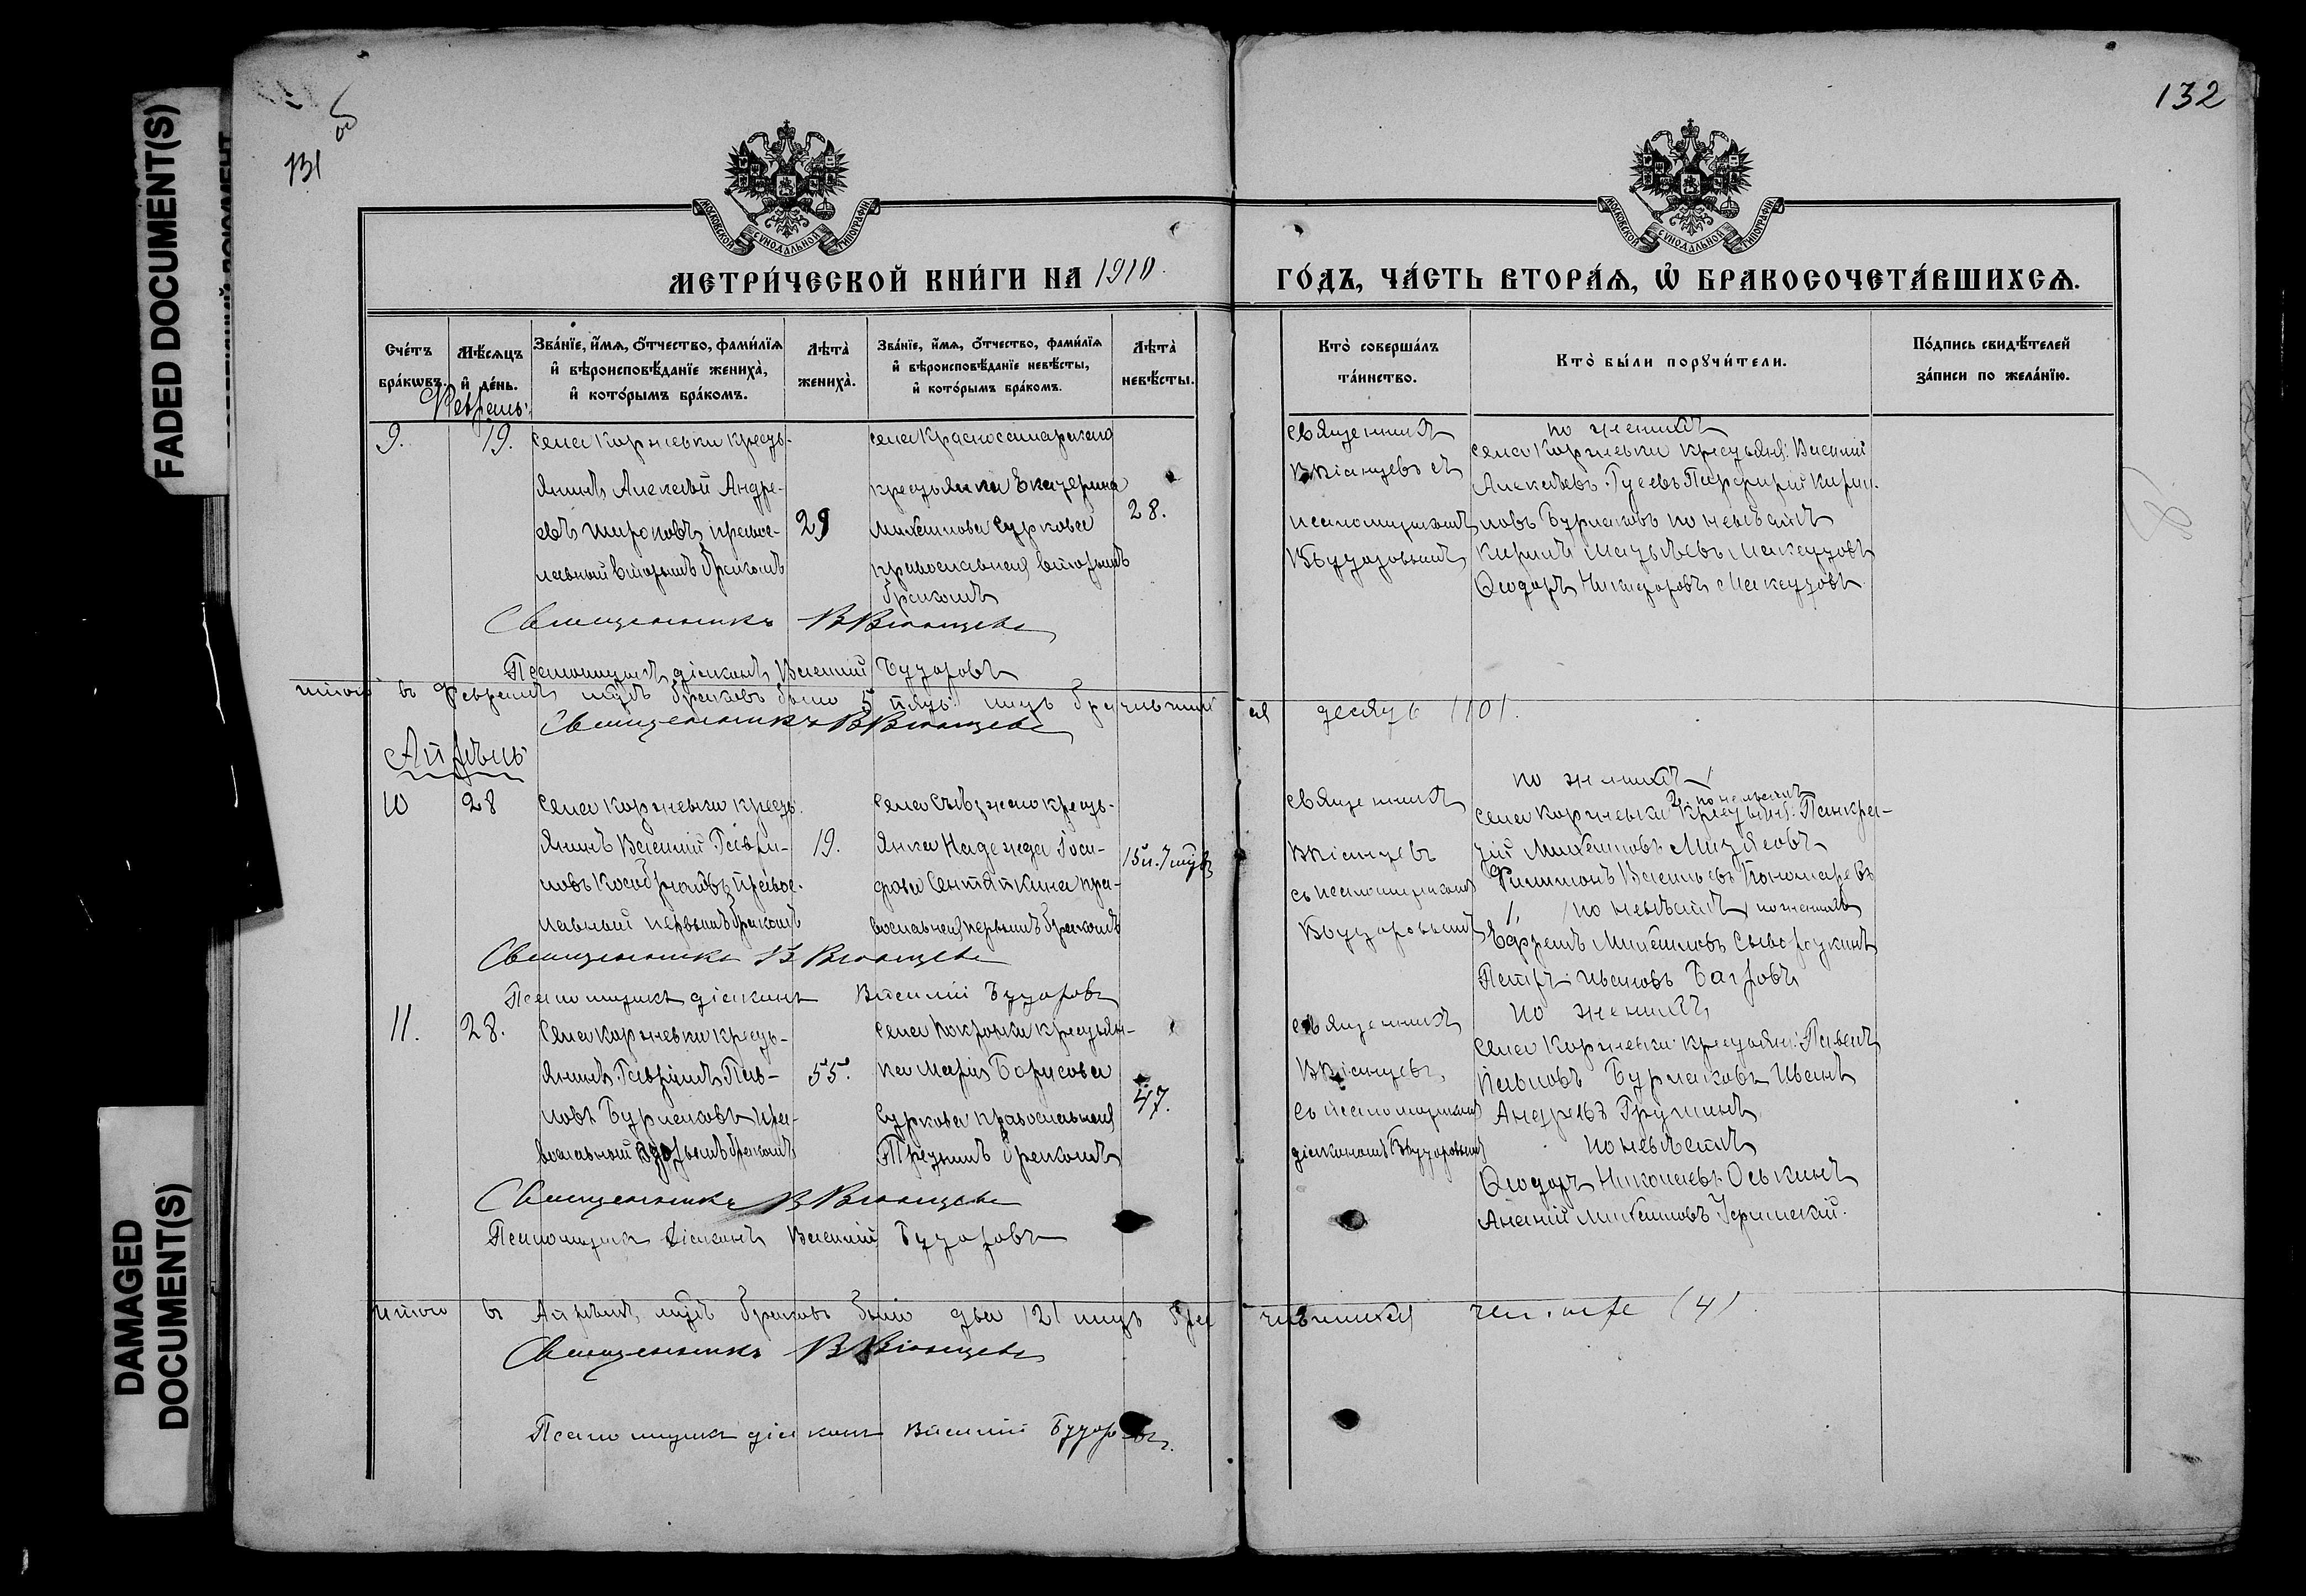 FADED DOCUMENT(S)
DAMAGED
DOCUMENT(S)
об
131
132
МОСКОВСКОЙ СѴНОДАЛЬНОЙ ТИПОГРАФІИ
МОСКОВСКОЙ СѴНОДАЛЬНОЙ ТИПОГРАФІИ
МЕТРИ́ЧЕСКОЙ КНИ́ГИ НА 1910
ГО́ДЪ, ЧА́СТЬ ВТОРА́Я, Ѿ БРАКОСОЧЕТА́ВШИХСЯ.
Сче́тъ
бра́кѡвъ.
Мѣ́сяцъ
и҆ де́нь.
Зва́нїе, и҆́мя, о҆́тчество, фами́лїя
и҆ вѣроисповѣ́данїе жениха̀,
и҆ кото́рымъ бра́комъ.
Лѣта̀
жениха̀.
Зва́нїе, и҆́мя, о҆́тчество, фами́лїя
и҆ вѣроисповѣ́данїе невѣ́сты,
и҆ кото́рымъ бра́комъ.
Лѣта̀
невѣ́сты.
Кто̀ соверша́лъ
та́инство.
Кто̀ бы́ли порꙋчи́тели.
По́дпись свидѣ́телей
за́писи по жела́нїю.
Февраль
9.
19.
села Коржевки кресть-
янинъ Алексѣй Андре-
евъ Мироновъ, правос-
лавный вторымъ бракомъ
29
села Красносамарскаго
крестьянка Екатерина
Михаилова Суркова
православная вторымъ
бракомъ
28.
Священникъ
В Кіанцевъ съ
псаломщикомъ
В Бугоровымъ
по женихѣ
села Коржевки крестьяне: Василій
Алексѣевъ Гусевъ Парфирій Кирил
ловъ Бурлаковъ по невѣстѣ
Өеодоръ Никифоровъ
Священникъ В Кіанцевъ
Псаломщикъ діаконъ Василій Бугоровъ
итого въ Февралѣ мцѣ браковъ было 5 пять лицъ брачившихся десять /10/.
Священникъ В Кіанцевъ
Апрѣль
10
28
села Коржевки кресть
янинъ Василій Гаври-
ловъ правос-
лавный первымъ бракомъ
19.
села Съѣзжаго кресть-
янка Надежда Іоси-
фова пра-
вославная первымъ бракомъ
15 л. 7 мцв
Священникъ
В Кіанцевъ
съ псаломщикомъ
В Бугоровымъ
по женихѣ
по невѣстѣ
села Коржевки крестьяне: Панкра-
тій Михаиловъ
Филимонъ Васильевъ Пономаревъ
/по невѣстѣ/ по женихѣ
Ефремъ Михаиловъ Сывороткинъ
Петръ Ивановъ Багровъ
Священникъ В Кіанцевъ
Псаломщикъ діаконъ Василій Бугоровъ
11.
28.
Села Коржевки кресть-
янинъ Гавріилъ Пав-
ловъ Бурлаковъ пра-
вославный вторымъ бракомъ
55.
села Покровки крестьян-
ка Марія Борисова
Суркова православная
Третьимъ бракомъ
47.
Священникъ
В Кіанцевъ
съ псаломщикомъ
діакономъ В Бугоровымъ
по женихѣ
села Коржевки крестьяне: Павелъ
Павловъ Бурлаковъ Иванъ
Андреевъ Грушинъ
по невѣстѣ
Өеодоръ Николаевъ Оськинъ
Ананій Михаиловъ
Священникъ В Кіанцевъ
Псаломщикъ діаконъ Василій Бугоровъ
итого въ Апрѣлѣ мцѣ браковъ было два /2/ лицъ брачившихся четыре (4)
Священникъ В Кіанцевъ
Псаломщикъ діаконъ Василій Бугоровъ.